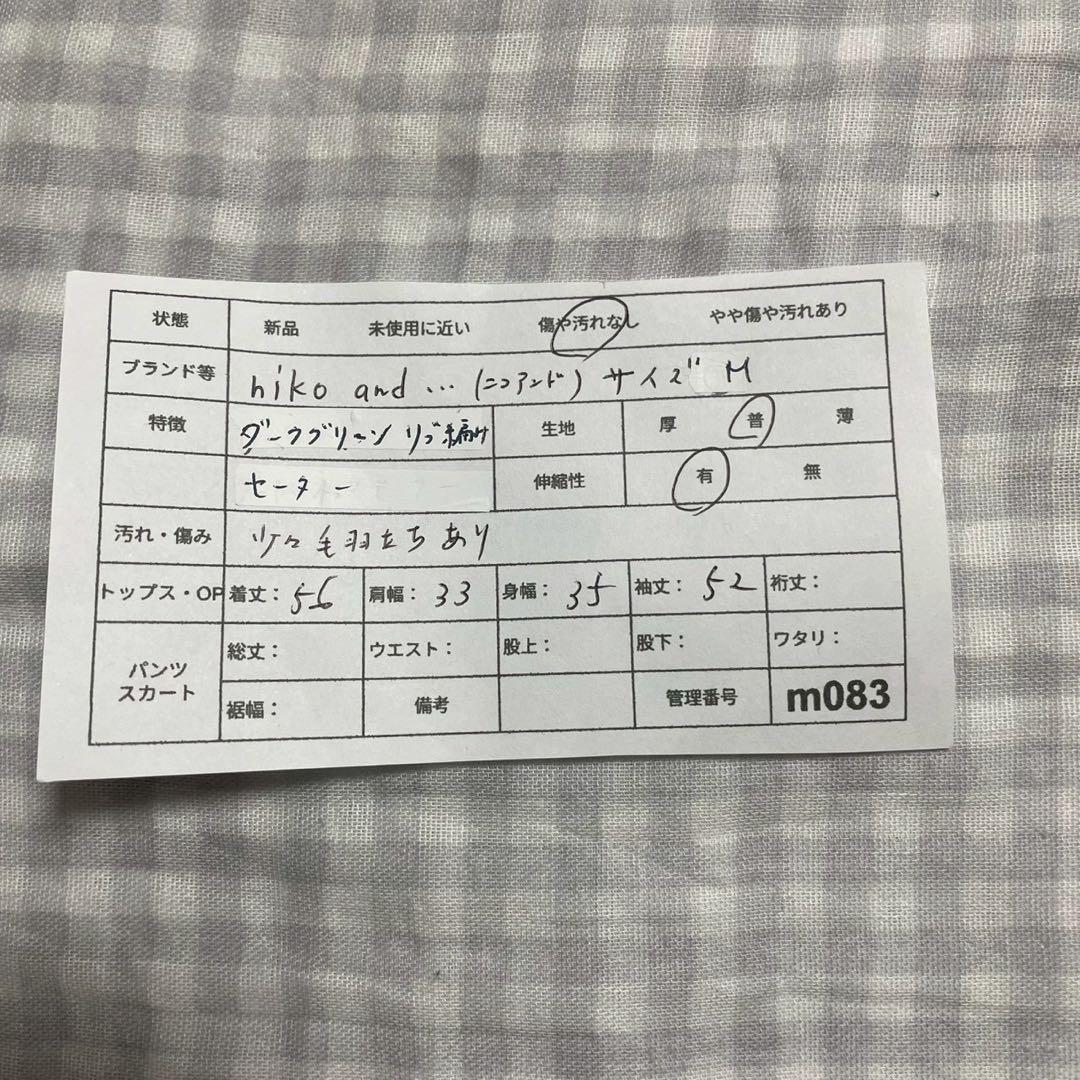 状態 新品 未使用に近い 傷や汚れなし やや傷や汚れあり
ブランド等 niko and ... (ニコアンド) サイズ M
特徴 ダークグリーン リブ編み 生地 厚 普 薄
セーター 伸縮性 有 無
汚れ・傷み 少々毛羽立ちあり
トップス・OP 着丈：56 肩幅：33 身幅：35 袖丈：52 裄丈：
パンツ スカート 総丈： ウエスト： 股上： 股下： ワタリ：
裾幅： 備考 管理番号 m083